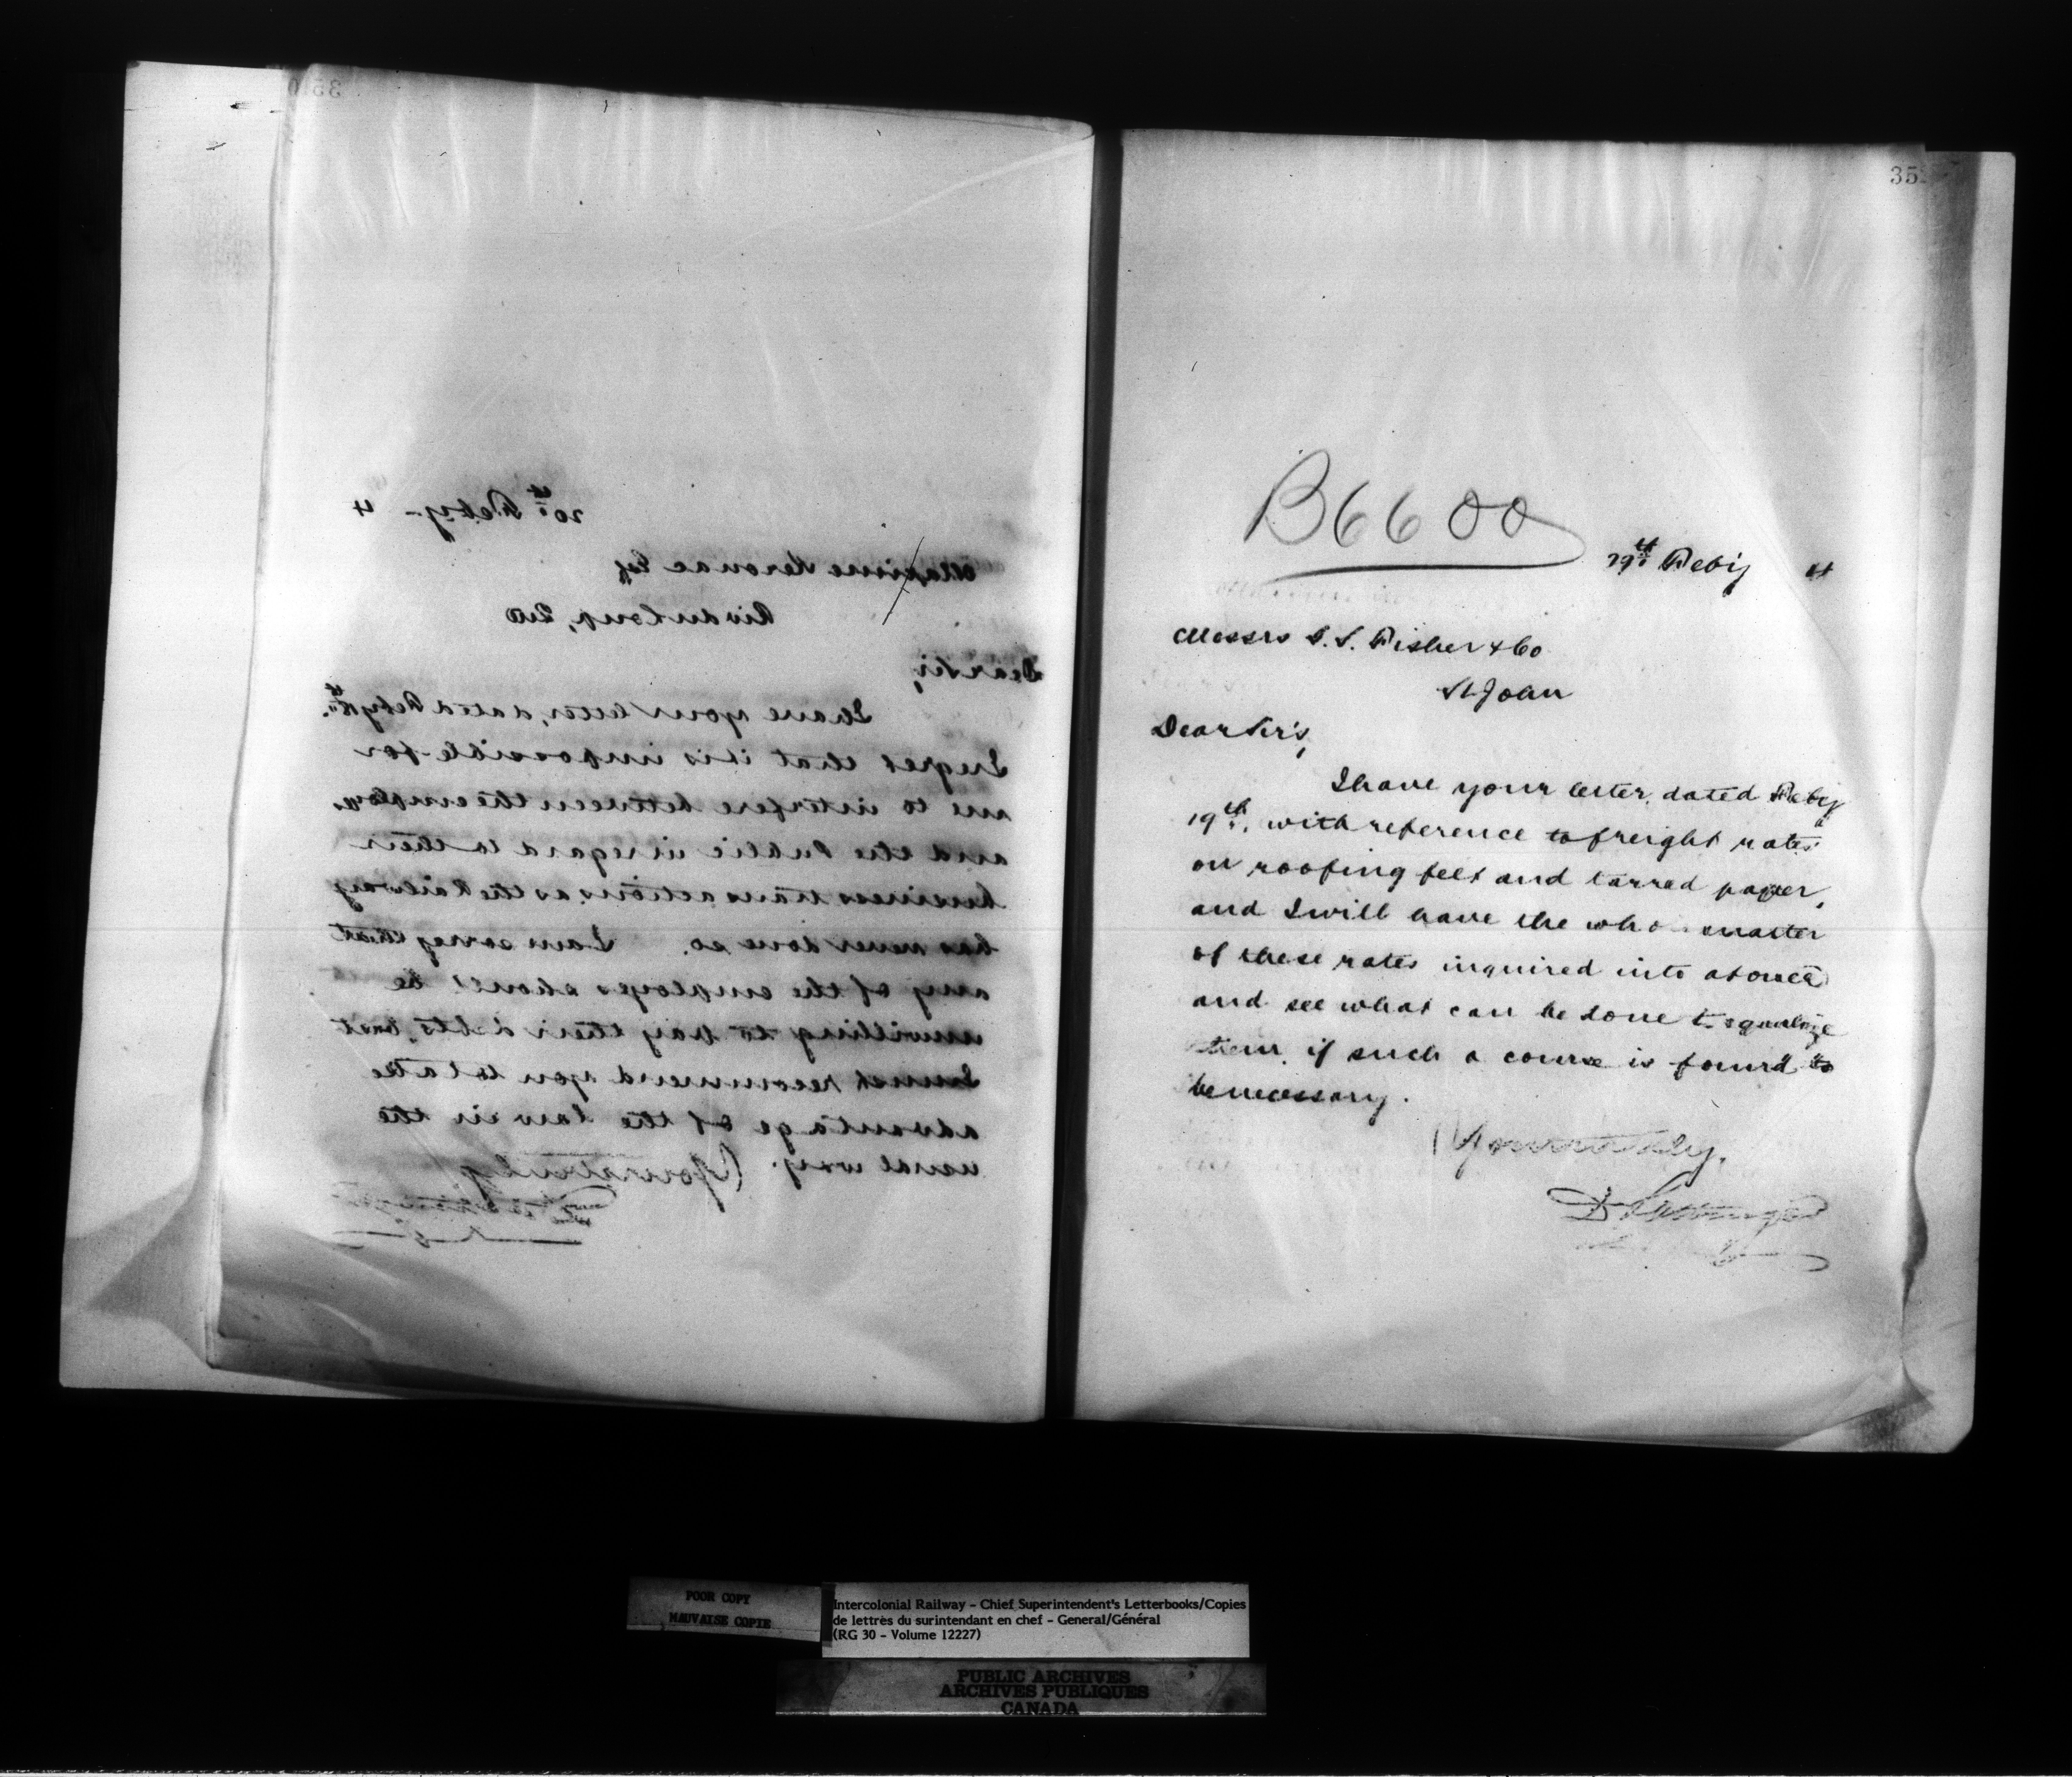 350
20th Feby - 4
Maxime Kerouac Esq
Riv du Loup, Que
Dear Sir,
I have your letter, dated Feby
I regret that it is impossible for
me to interfere between the employes
and the Public in regard to their
business transactions as the Railway
has never done so. I am sorry that
any of the employes should be
unwilling to pay their debts, but
I must recommend you to take
advantage of the law in the
usual way. Yours truly
35
B6600
29th Feby 4
Messrs S. S. Fisher & Co
St John
Dear Sirs,
I have your letter, dated Feby
19th, with reference to freight rates
on roofing felt and tarred paper,
and I will have the whole matter
of these rates inquired into at once
and see what can be done to equalize
them, if such a course is found to
be necessary.
Yours truly,
D Pottinger
POOR COPY
MAUVAISE COPIE
Intercolonial Railway - Chief Superintendent's Letterbooks/Copies
de lettres du surintendant en chef - General/Général
(RG 30 - Volume 12227)
PUBLIC ARCHIVES
ARCHIVES PUBLIQUES
CANADA